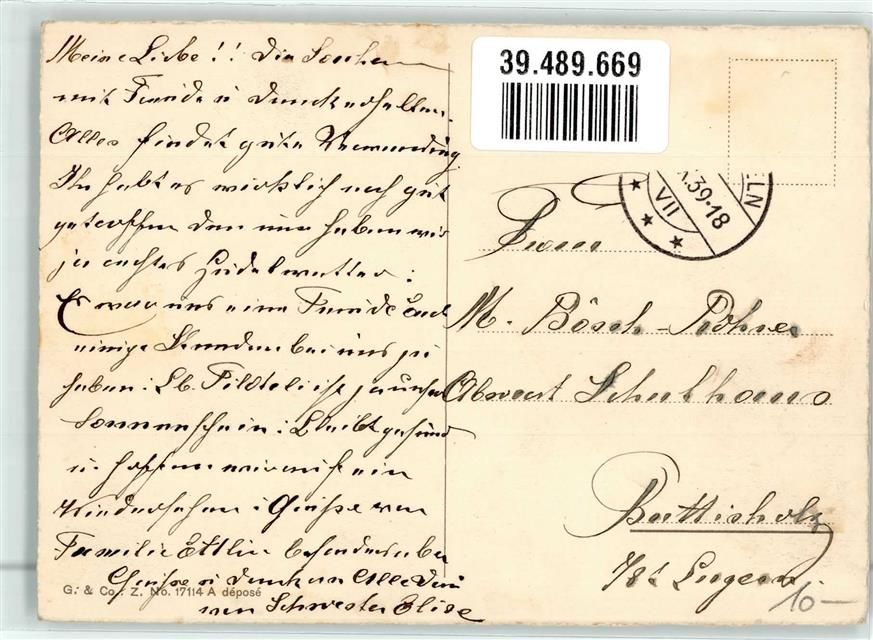 Meine Liebe!! Die Sachen
mit Freude u Dank erhalten.
Alles findet gute Verwendung
Ihr habt es wirklich noch gut
getroffen den nun haben wir
ja echtes Hudelwetter:
Es war uns eine Freude Euch
einige Stunden bei uns zu
haben: Lb. ist ja unser
Sonnenschein: Bleibt gesund
u. hoffen wir auf ein
Wiedersehen: Grüsse von
Familie Ettlin besonders aber
Grüsse u dank an Alle dein
von Schwester Elise
G. & Co., Z. No. 17114 A déposé
39.489.669
VII.39-18
LN
M. Bösch-Rohrer
Abwart Schulhaus
Buttisholz
Kt Luzern.
10-